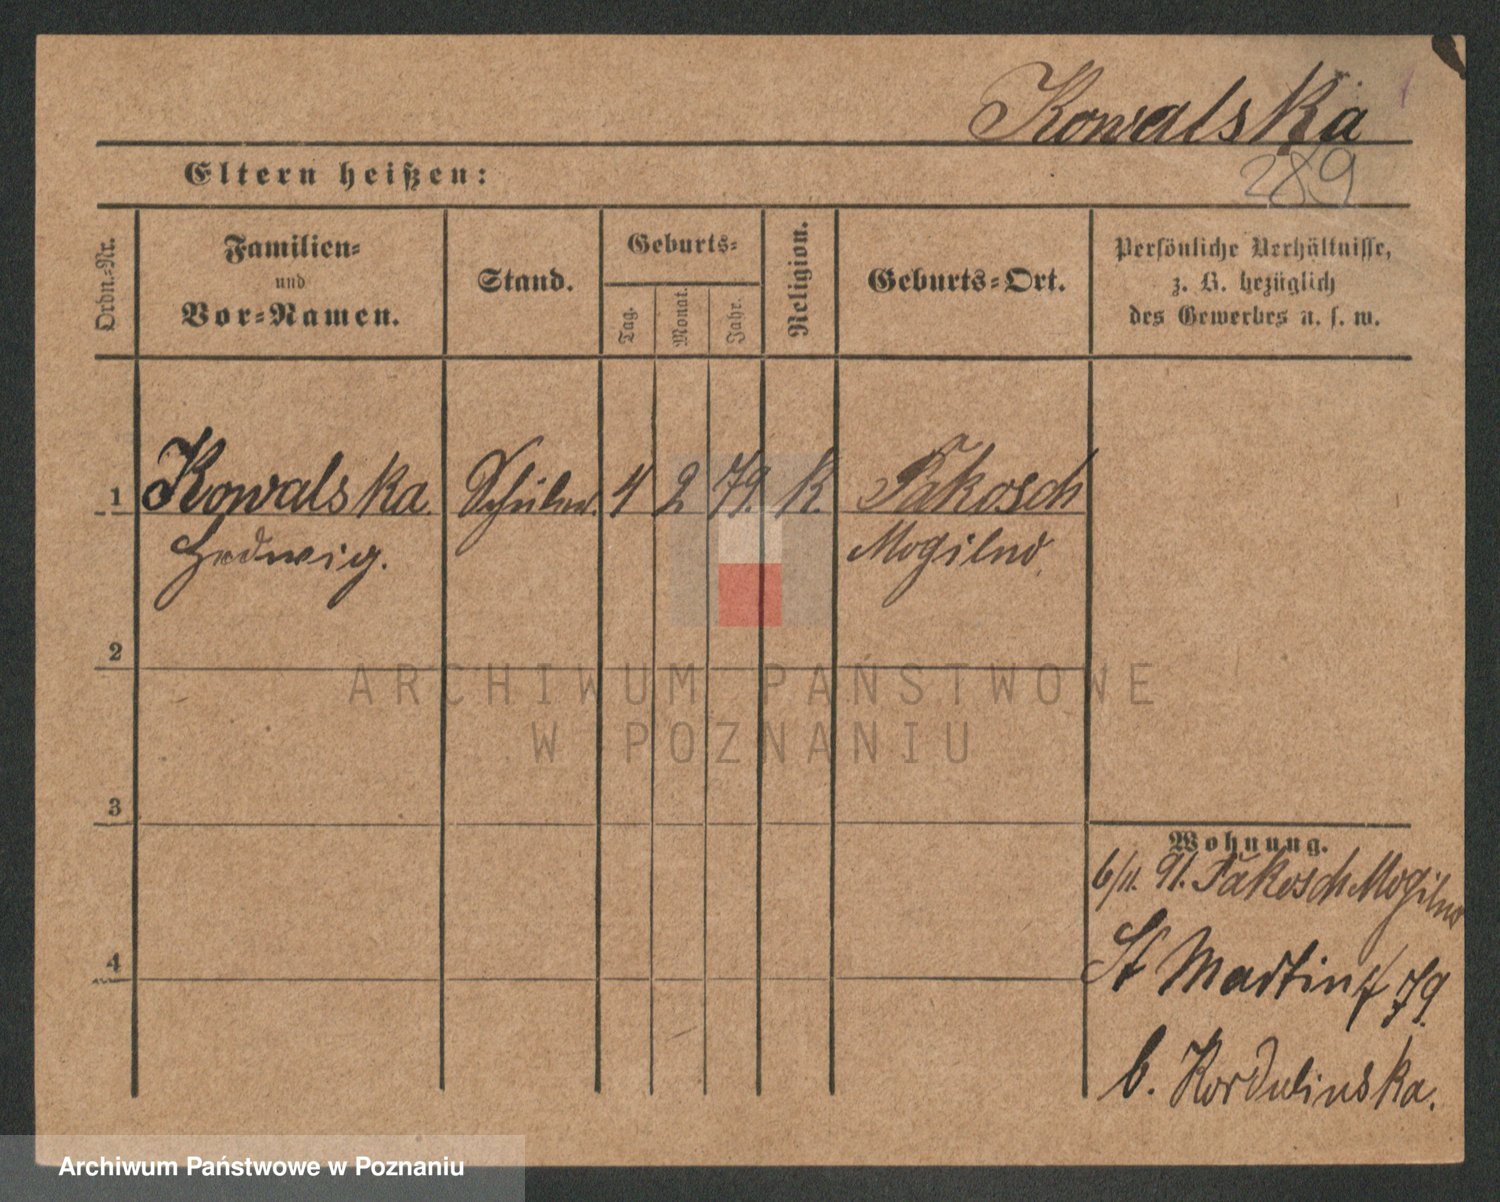 Kowalska
289
Eltern heißen:
Ordn.-Nr.
Familien-
und
Vor-Namen.
Stand.
Geburts-
Tag.
Monat.
Jahr.
Religion.
Geburts-Ort.
Persönliche Verhältnisse,
z. B. bezüglich
des Gewerbes u. s. w.
1 Kowalska Schülerin. 4 2 79. K. Pakosch
Hedwig. Mogilno.
2
ARCHIWUM PAŃSTWOWE
W POZNANIU
3
Wohnung.
6/11. 91. Pakosch Mogilno
4 St Martin 79.
b. Kordulinska.
Archiwum Państwowe w Poznaniu